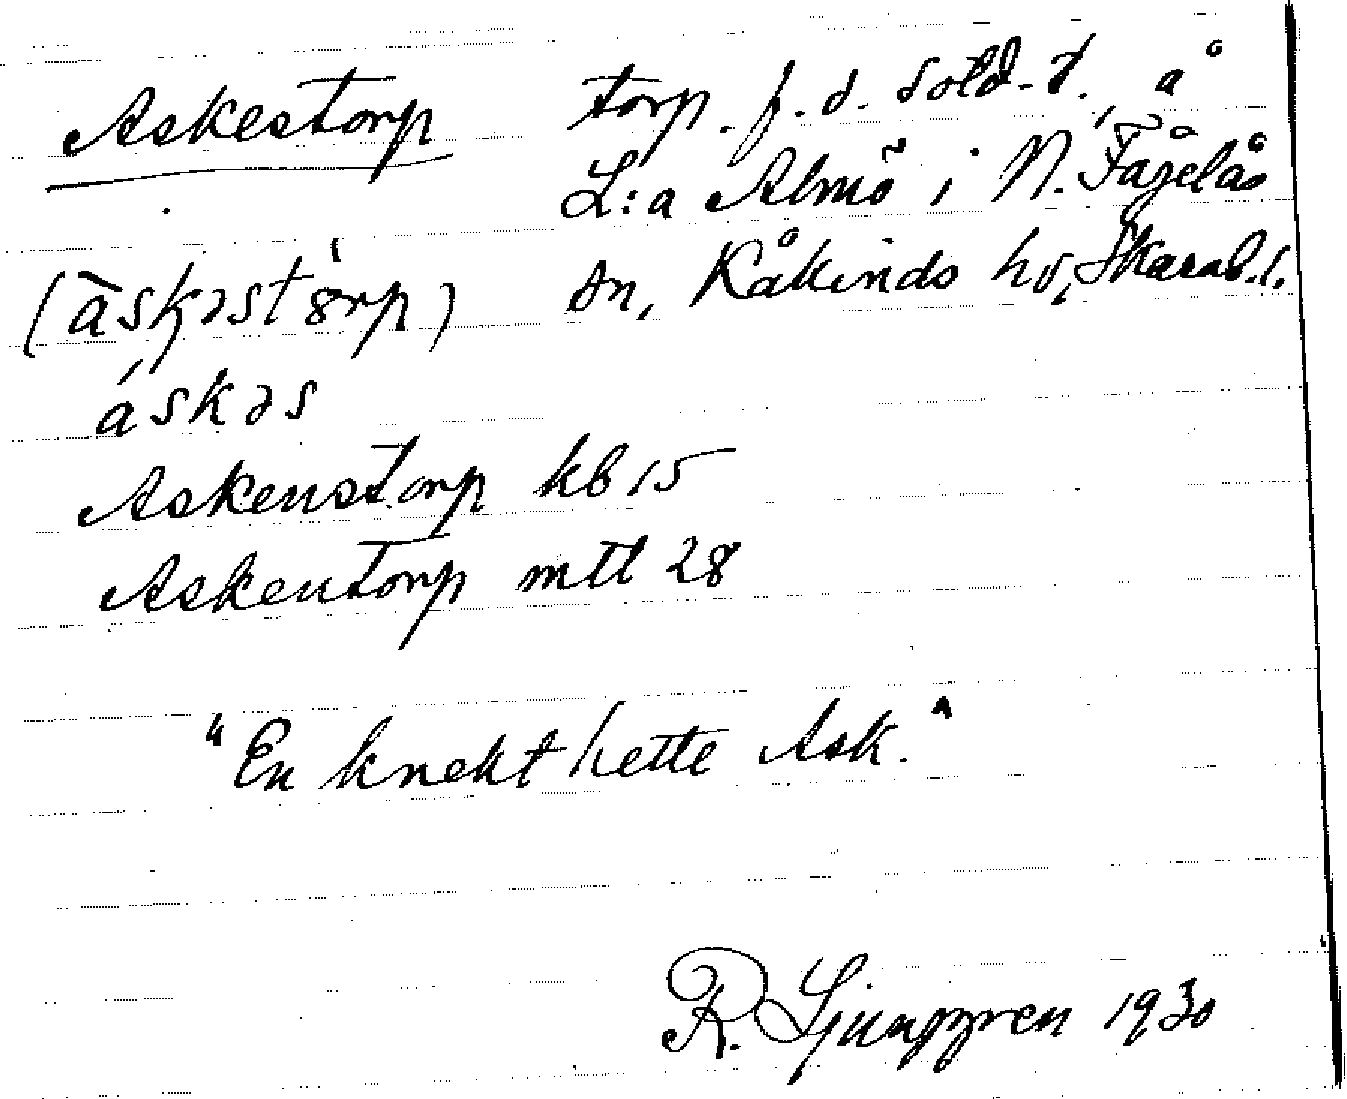 Askestorp torp. f.d. sold-t., å
L:a Almö i N. Fågelås
(àskəstórp) sn, Kåkinds hd, Skarab.l.
áskəs
Askenstorp kb 15
Askentorp mtl 28
"En knekt hette Ask."
R. Ljunggren 1930